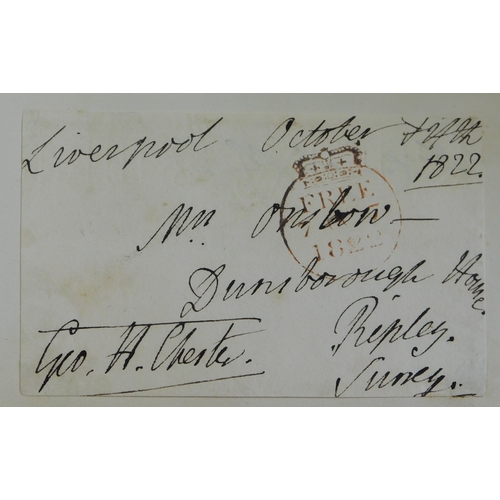 Liverpool October 24th
1822.
FREE
1822
Mrs. Onslow
Dunsborough House.
Ripley.
Surrey.
Geo. H. Chester.